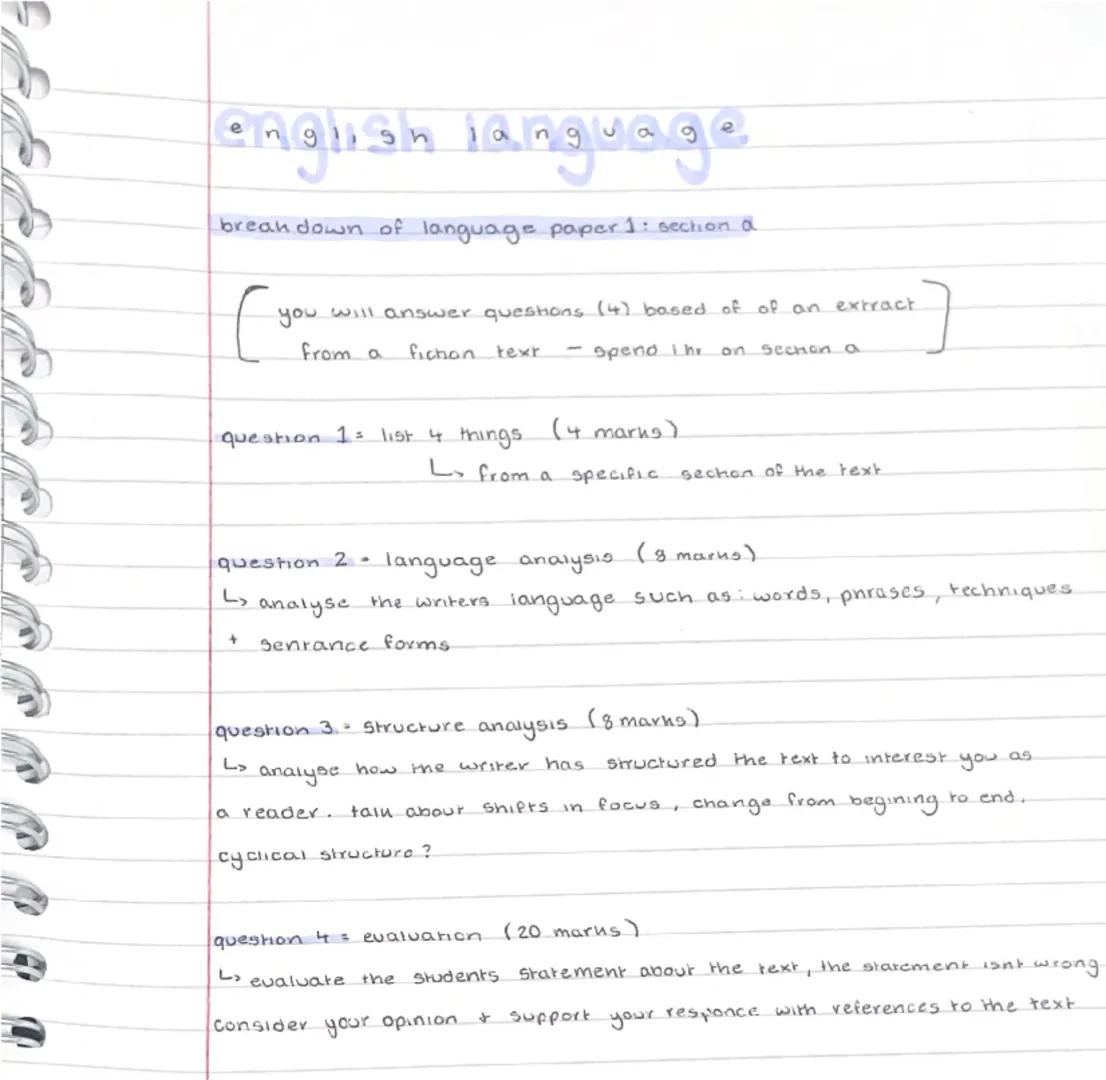 english language
breakdown of language paper 1: section a
you will answer questions (4) based of of an extract
from a fiction text - spend 1 hr on section a
question 1 = list 4 things (4 marks)
↳ from a specific section of the text
question 2 = language analysis (8 marks)
↳ analyse the writers language such as: words, phrases, techniques
+ sentance forms
question 3 = structure analysis (8 marks)
↳ analyse how the writer has structured the text to interest you as
a reader. talk about shifts in focus, change from begining to end,
cyclical structure?
question 4 = evaluation (20 marks)
↳ evaluate the students statement about the text, the statement isnt wrong
consider your opinion + support your responce with references to the text